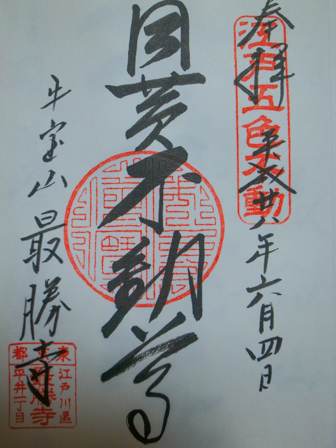 奉拝
江戸五色不動
平成廿八年六月四日
目黄不動尊
牛宝山最勝寺
東京都江戸川区平井一丁目
最勝寺